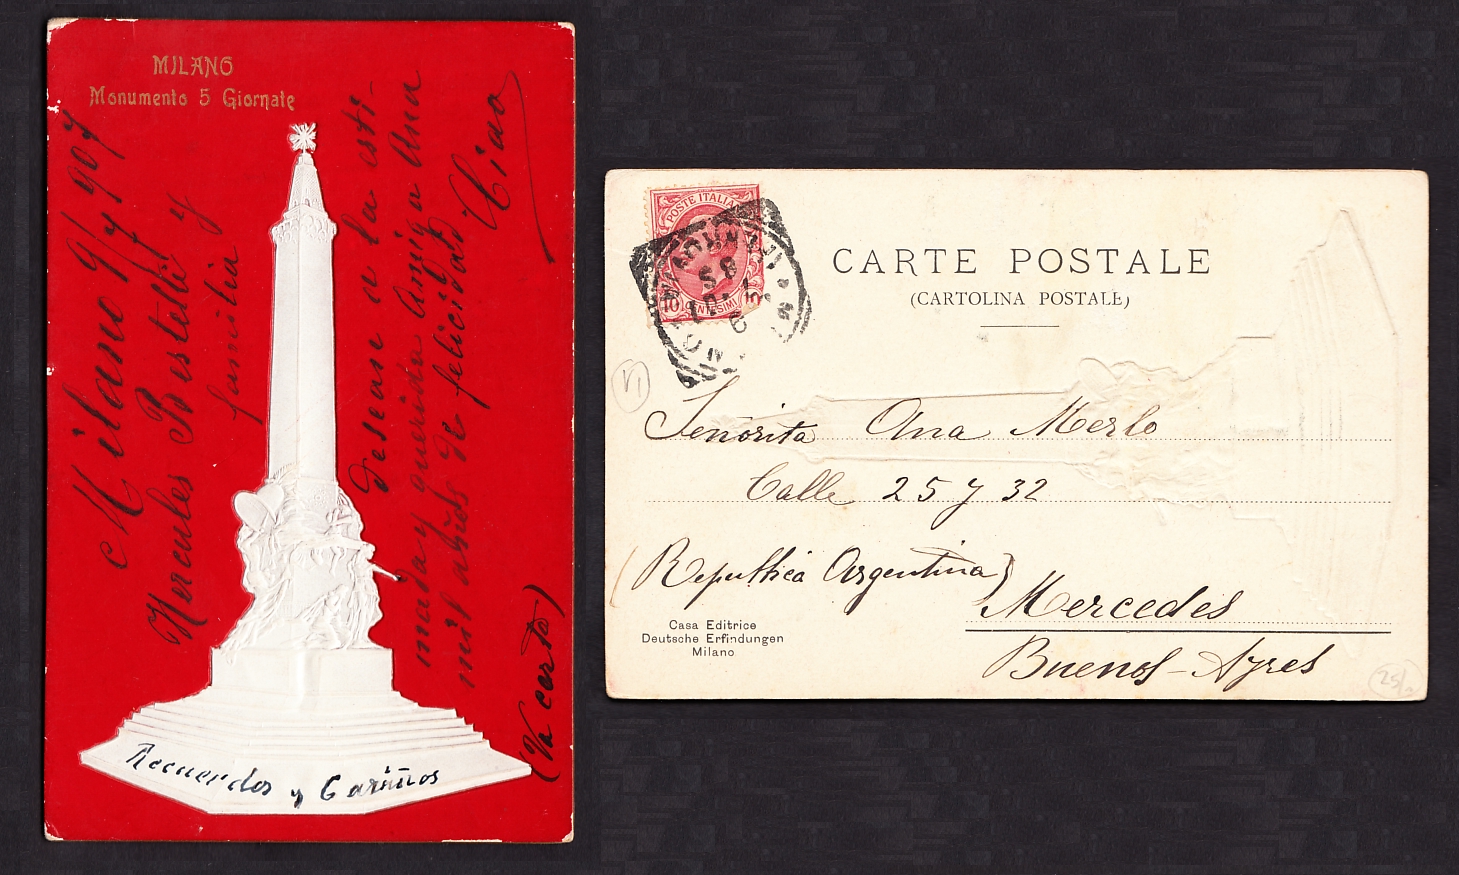 MILANO
Monumento 5 Giornate
Milano 9/7 907
Hercules Restelli y
familia
desean a la esti-
mada y querida Amiga Ana
mil años de felicidad Ciao
(Va certo)
Recuerdos y Cariños
POSTE ITALIANE
10
CENTESIMI
MILANO
CARTE POSTALE
(CARTOLINA POSTALE)
VI
Señorita Ana Merlo
Calle 25 y 32
(Republica Argentina)
Mercedes
Buenos-Ayres
Casa Editrice
Deutsche Erfindungen
Milano